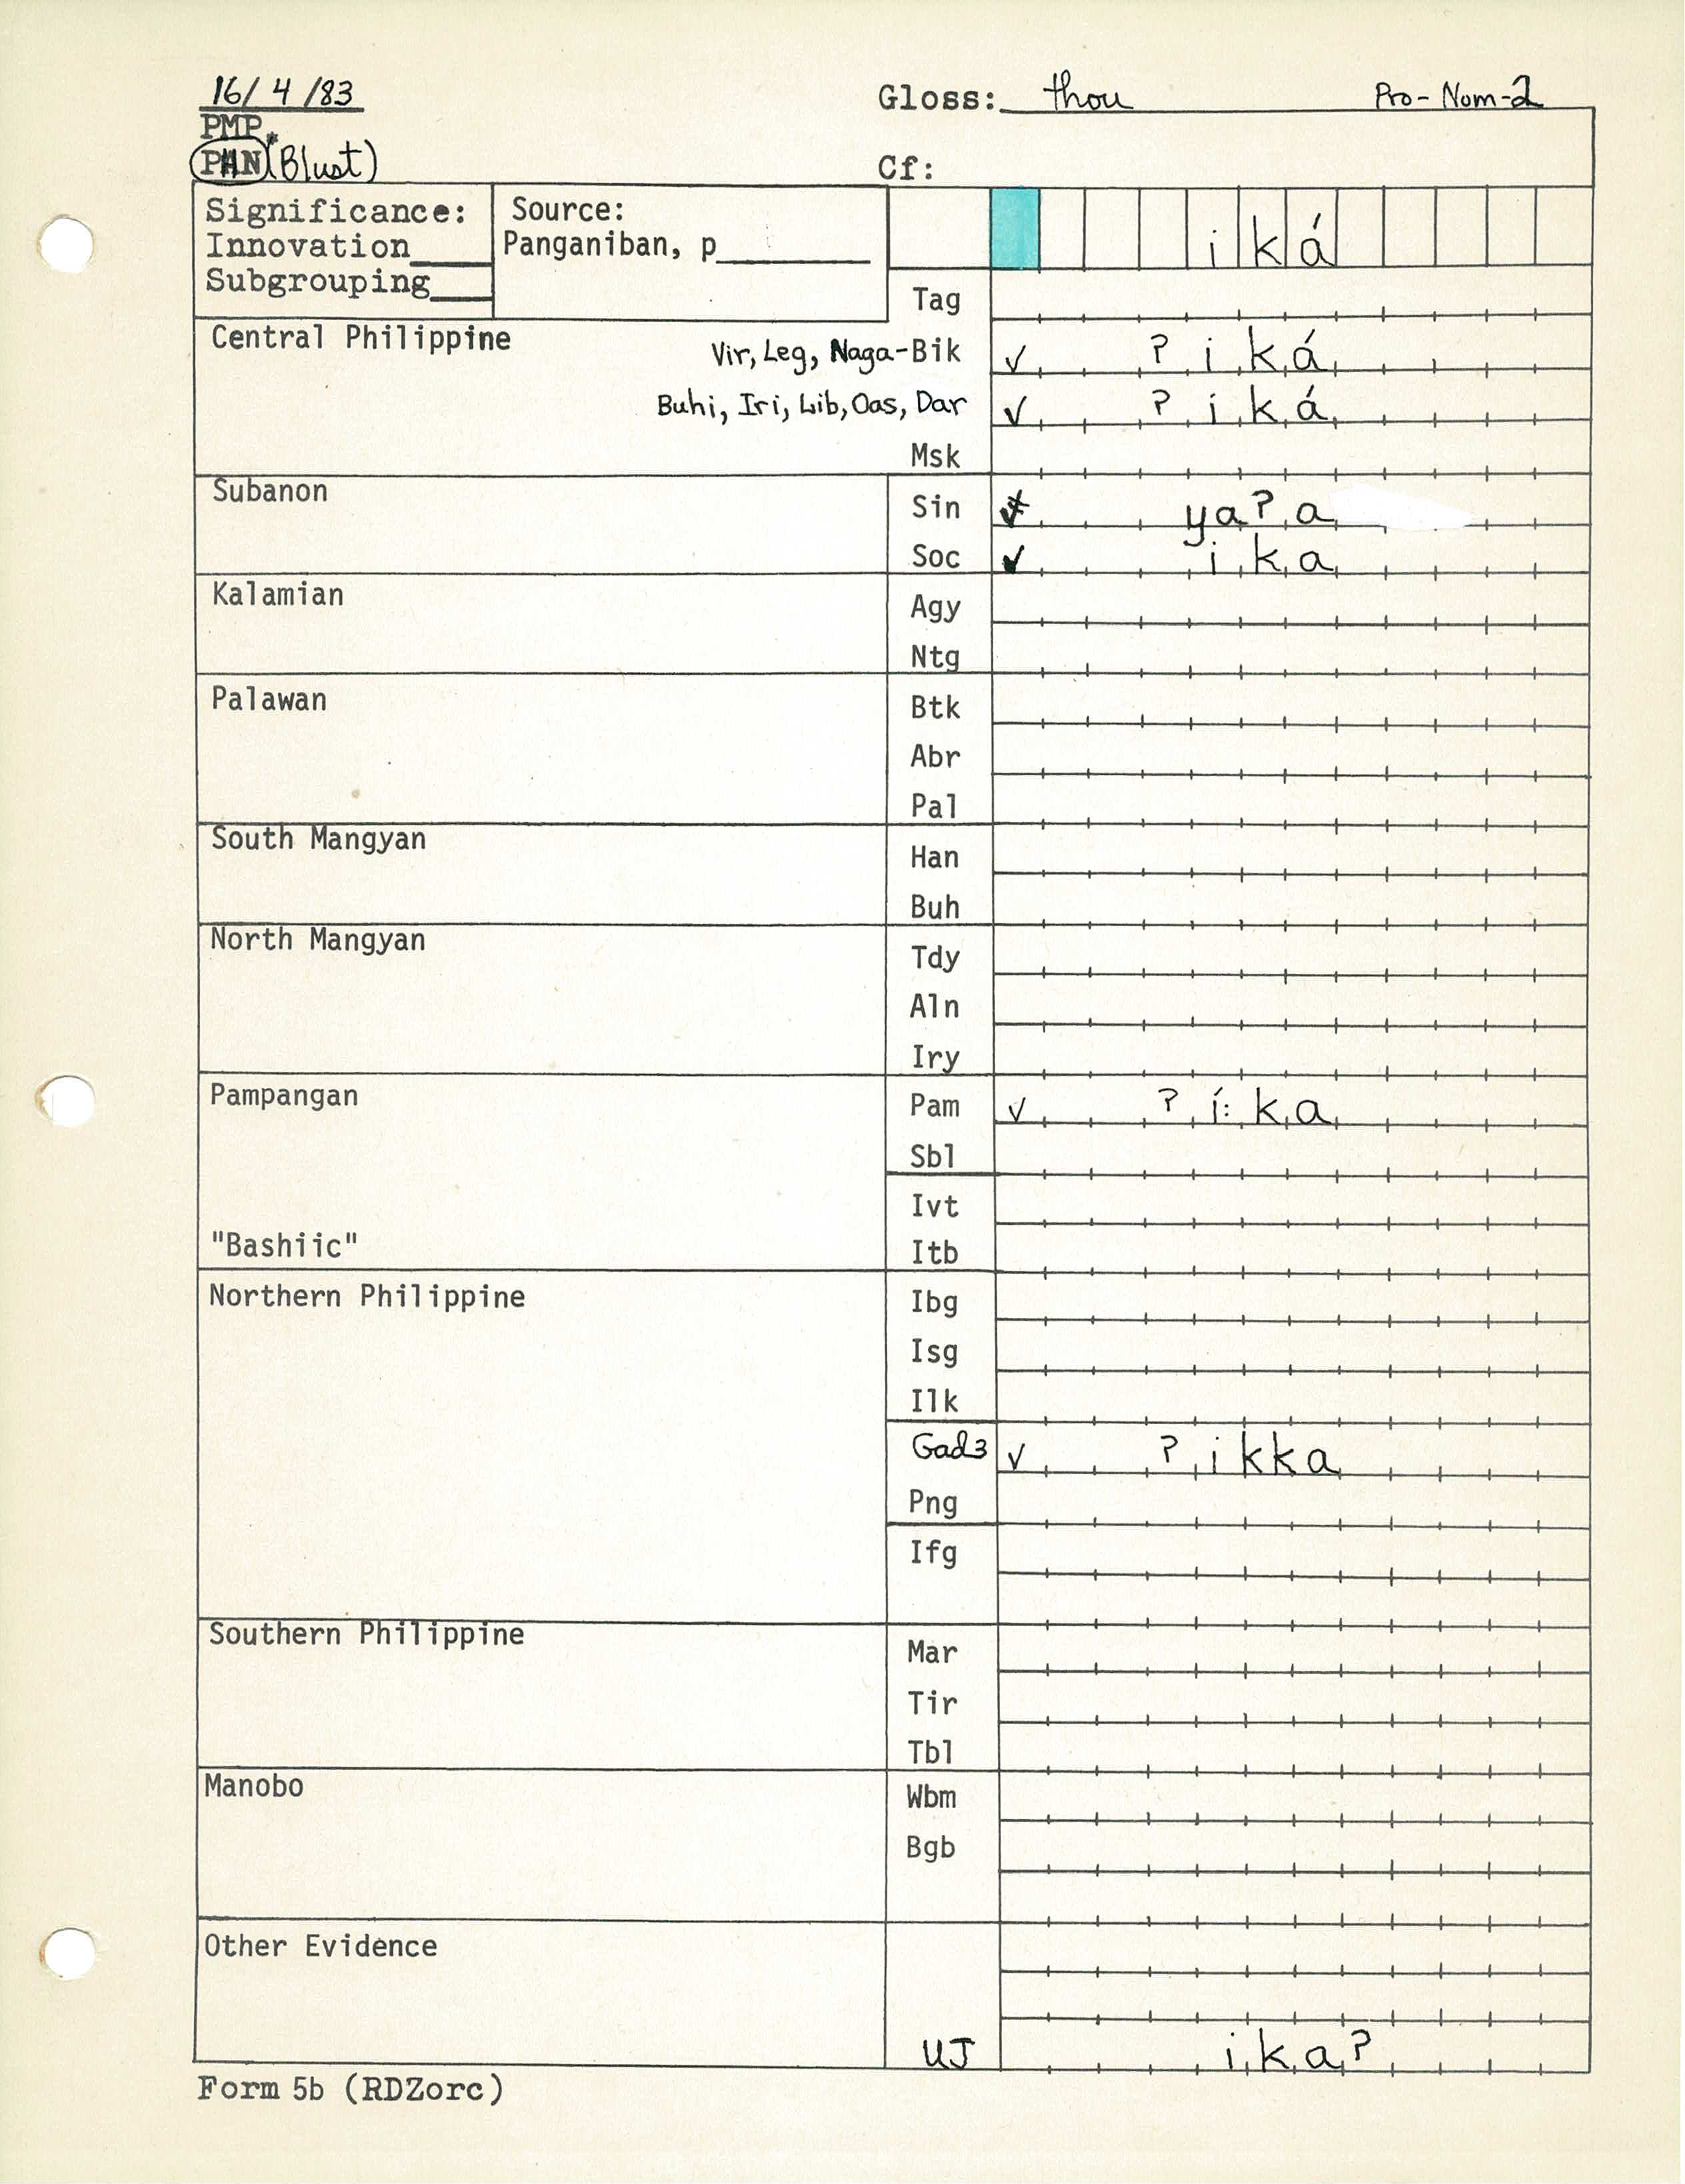 16/4/83
Gloss: thou Pro-Nom-2
PMP
PAN* (Blust)
Cf:
Significance:
Innovation____
Subgrouping____
Source:
Panganiban, p________
iká
Tag
Central Philippine
Vir, Leg, Naga-Bik ✓ ?iká
Buhi, Iri, Lib, Oas, Dar ✓ ?iká
Msk
Subanon
Sin ya?a
Soc ✓ ika
Kalamian
Agy
Ntg
Palawan
Btk
Abr
Pal
South Mangyan
Han
Buh
North Mangyan
Tdy
Aln
Iry
Pampangan
Pam ✓ ?í:ka
Sbl
Ivt
"Bashiic"
Itb
Northern Philippine
Ibg
Isg
Ilk
Gad3 ✓ ?ikka
Png
Ifg
Southern Philippine
Mar
Tir
Tbl
Manobo
Wbm
Bgb
Other Evidence
UJ ika?
Form 5b (RDZorc)